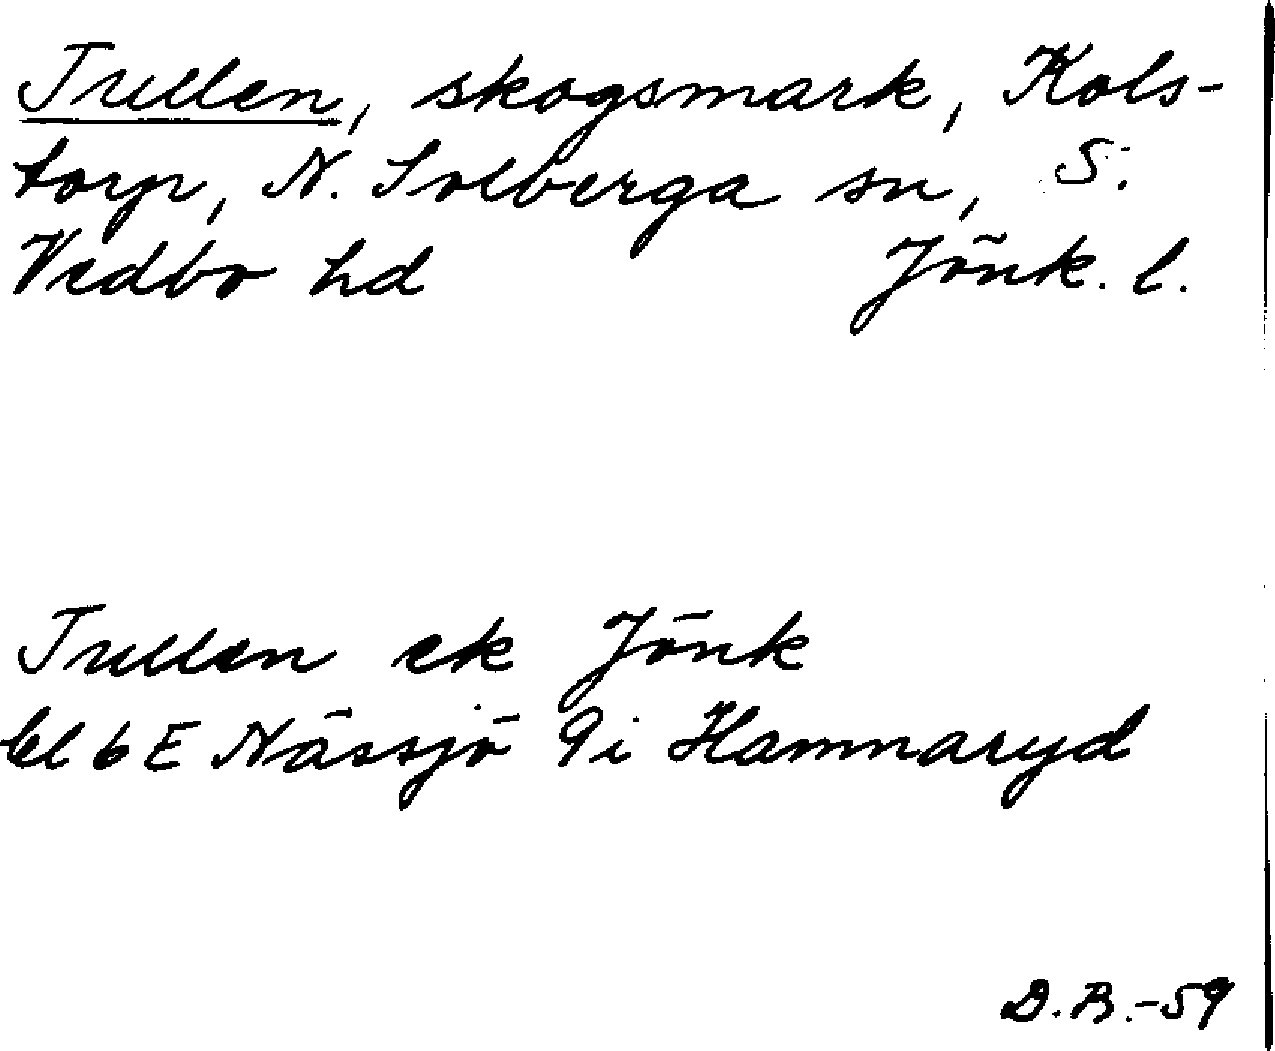 Trullen, skogsmark, Kols-
torp, N. Solberga sn, S.
Vedbo hd Jönk. l.
Trullen ek Jönk
bl 6 E Nässjö 9i Hamnaryd
D.R.-59